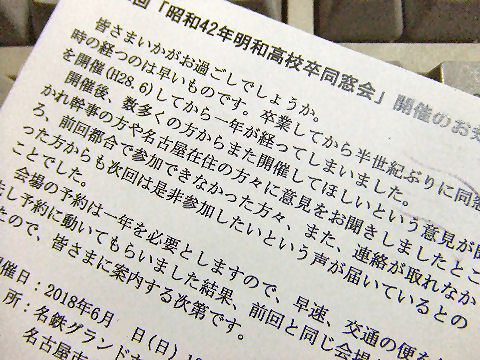 回「昭和42年明和高校卒同窓会」開催のお
皆さまいかがお過ごしでしょうか。
時の経つのは早いものです。卒業してから半世紀ぶりに同窓
を開催(H28.6)してから一年が経ってしまいました。
開催後、数多くの方からまた開催してほしいという意見が
かれ幹事の方や名古屋在住の方々に意見をお聞きしましたとこ
ろ、前回都合で参加できなかった方々、また、連絡が取れなか
った方からも次回は是非参加したいという声が届いているとの
ことでした。
会場の予約は一年を必要としますので、早速、交通の便
し予約に動いてもらいました結果、前回と同じ会場
たので、皆さまに案内する次第です。
開催日：2018年6月 日(日)
所：名鉄グランド
名古屋市